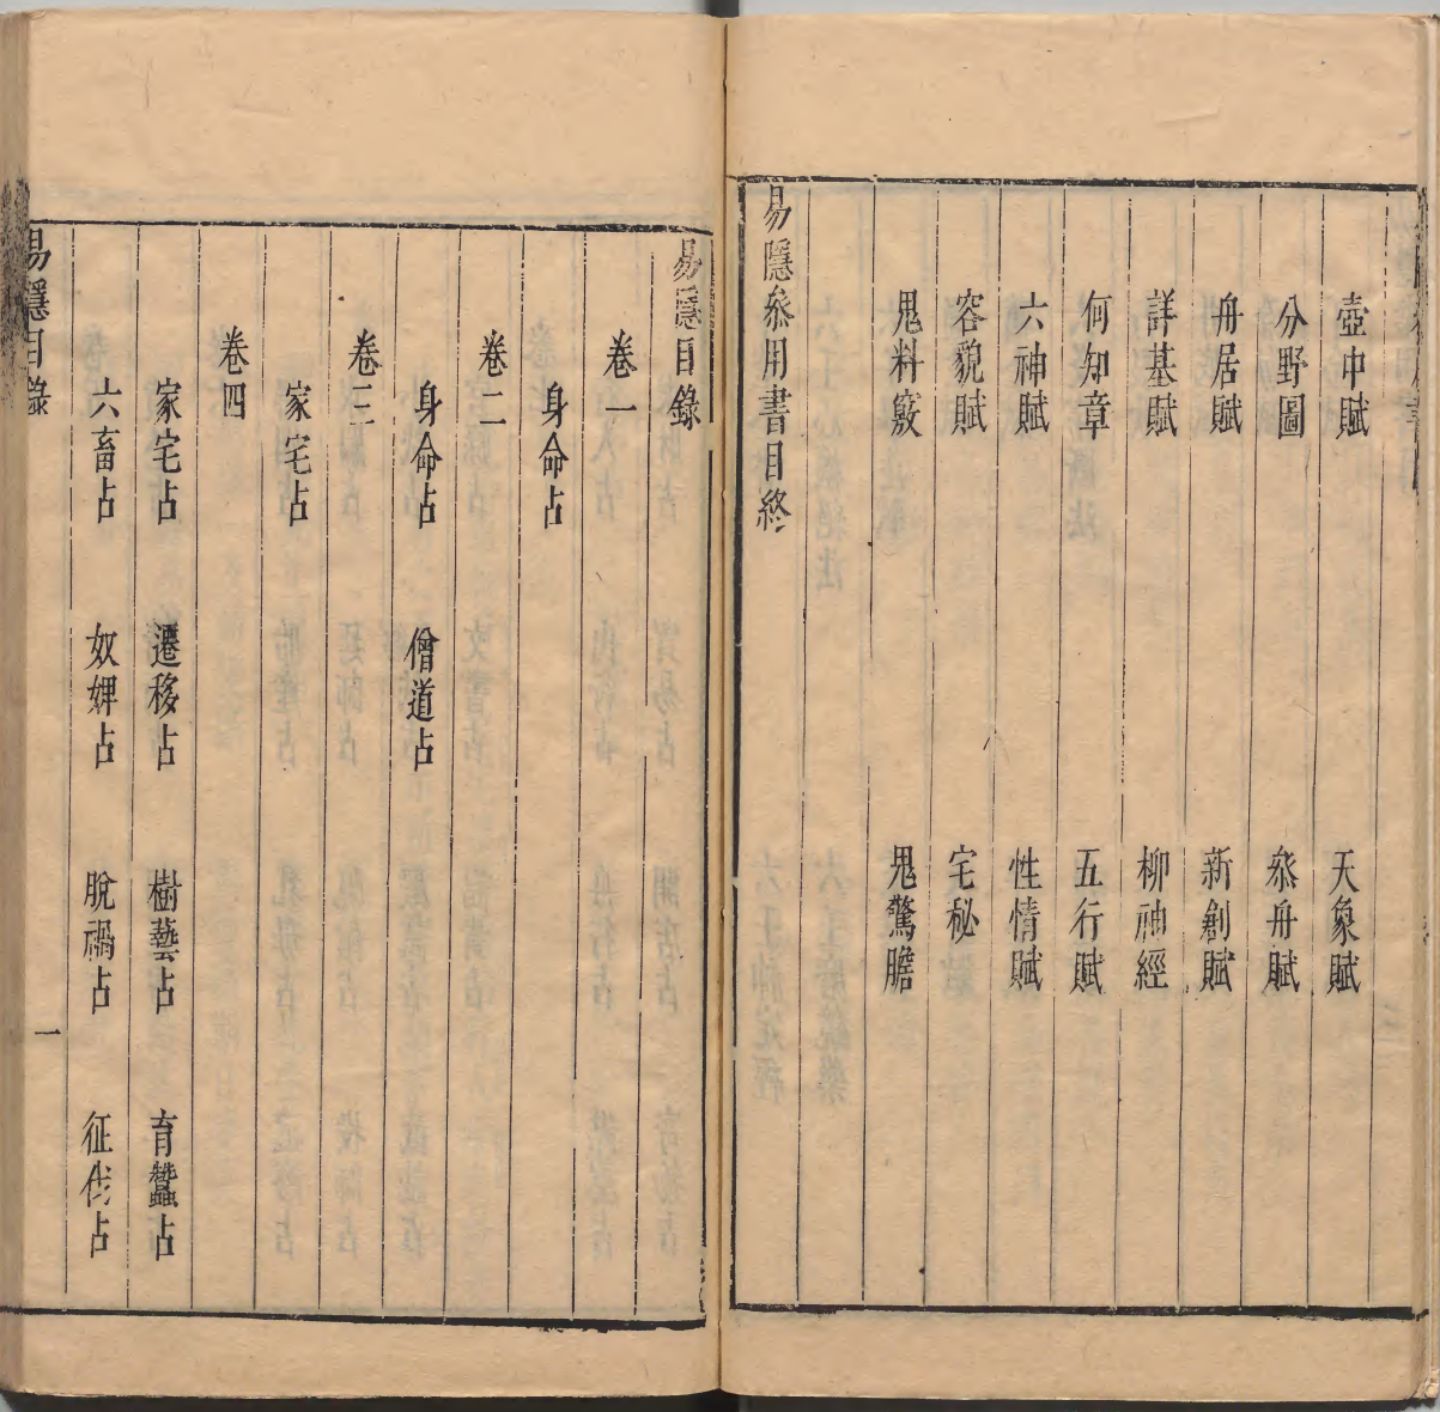 壺中賦 天象賦
分野圖 叅舟賦
舟居賦 新創賦
詳基賦 柳神經
何知章 五行賦
六神賦 性情賦
容貌賦 宅秘
鬼料竅 鬼驚膽
易隱叅用書目終
易隱目錄
卷一
身命占
卷二
身命占 僧道占
卷三
家宅占
卷四
家宅占 遷移占 樹藝占 育蠶占
六畜占 奴婢占 脫禍占 征伐占
易隱目錄 一